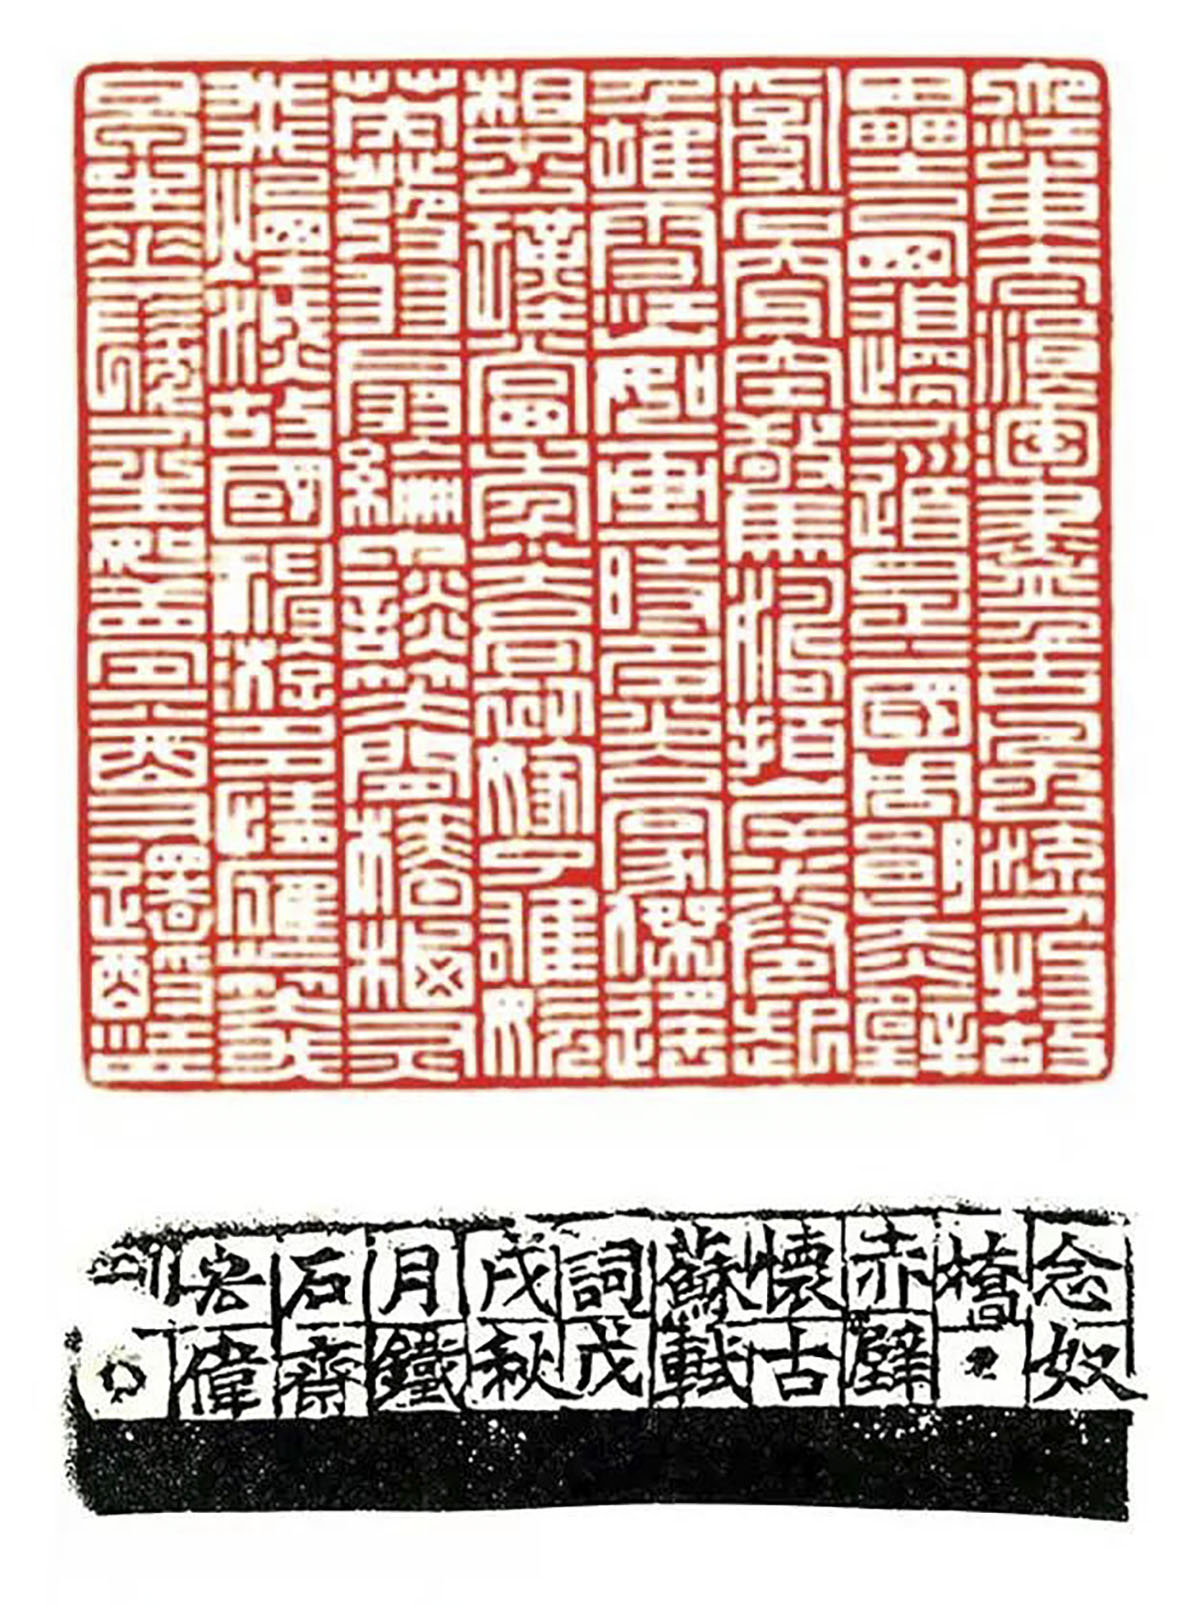 大江東去浪淘盡千古風流人物故
壘西邊人道是三國周郎赤壁
亂石穿空驚濤拍岸卷起
千堆雪江山如畫一時多少豪傑遙
想公瑾當年小喬初嫁了雄姿
英發羽扇綸巾談笑間檣櫓灰
飛煙滅故國神游多情應笑我
念奴
嬌·
赤壁
懷古
蘇軾
詞戊
戌秋
月鐵
石齋
宏偉